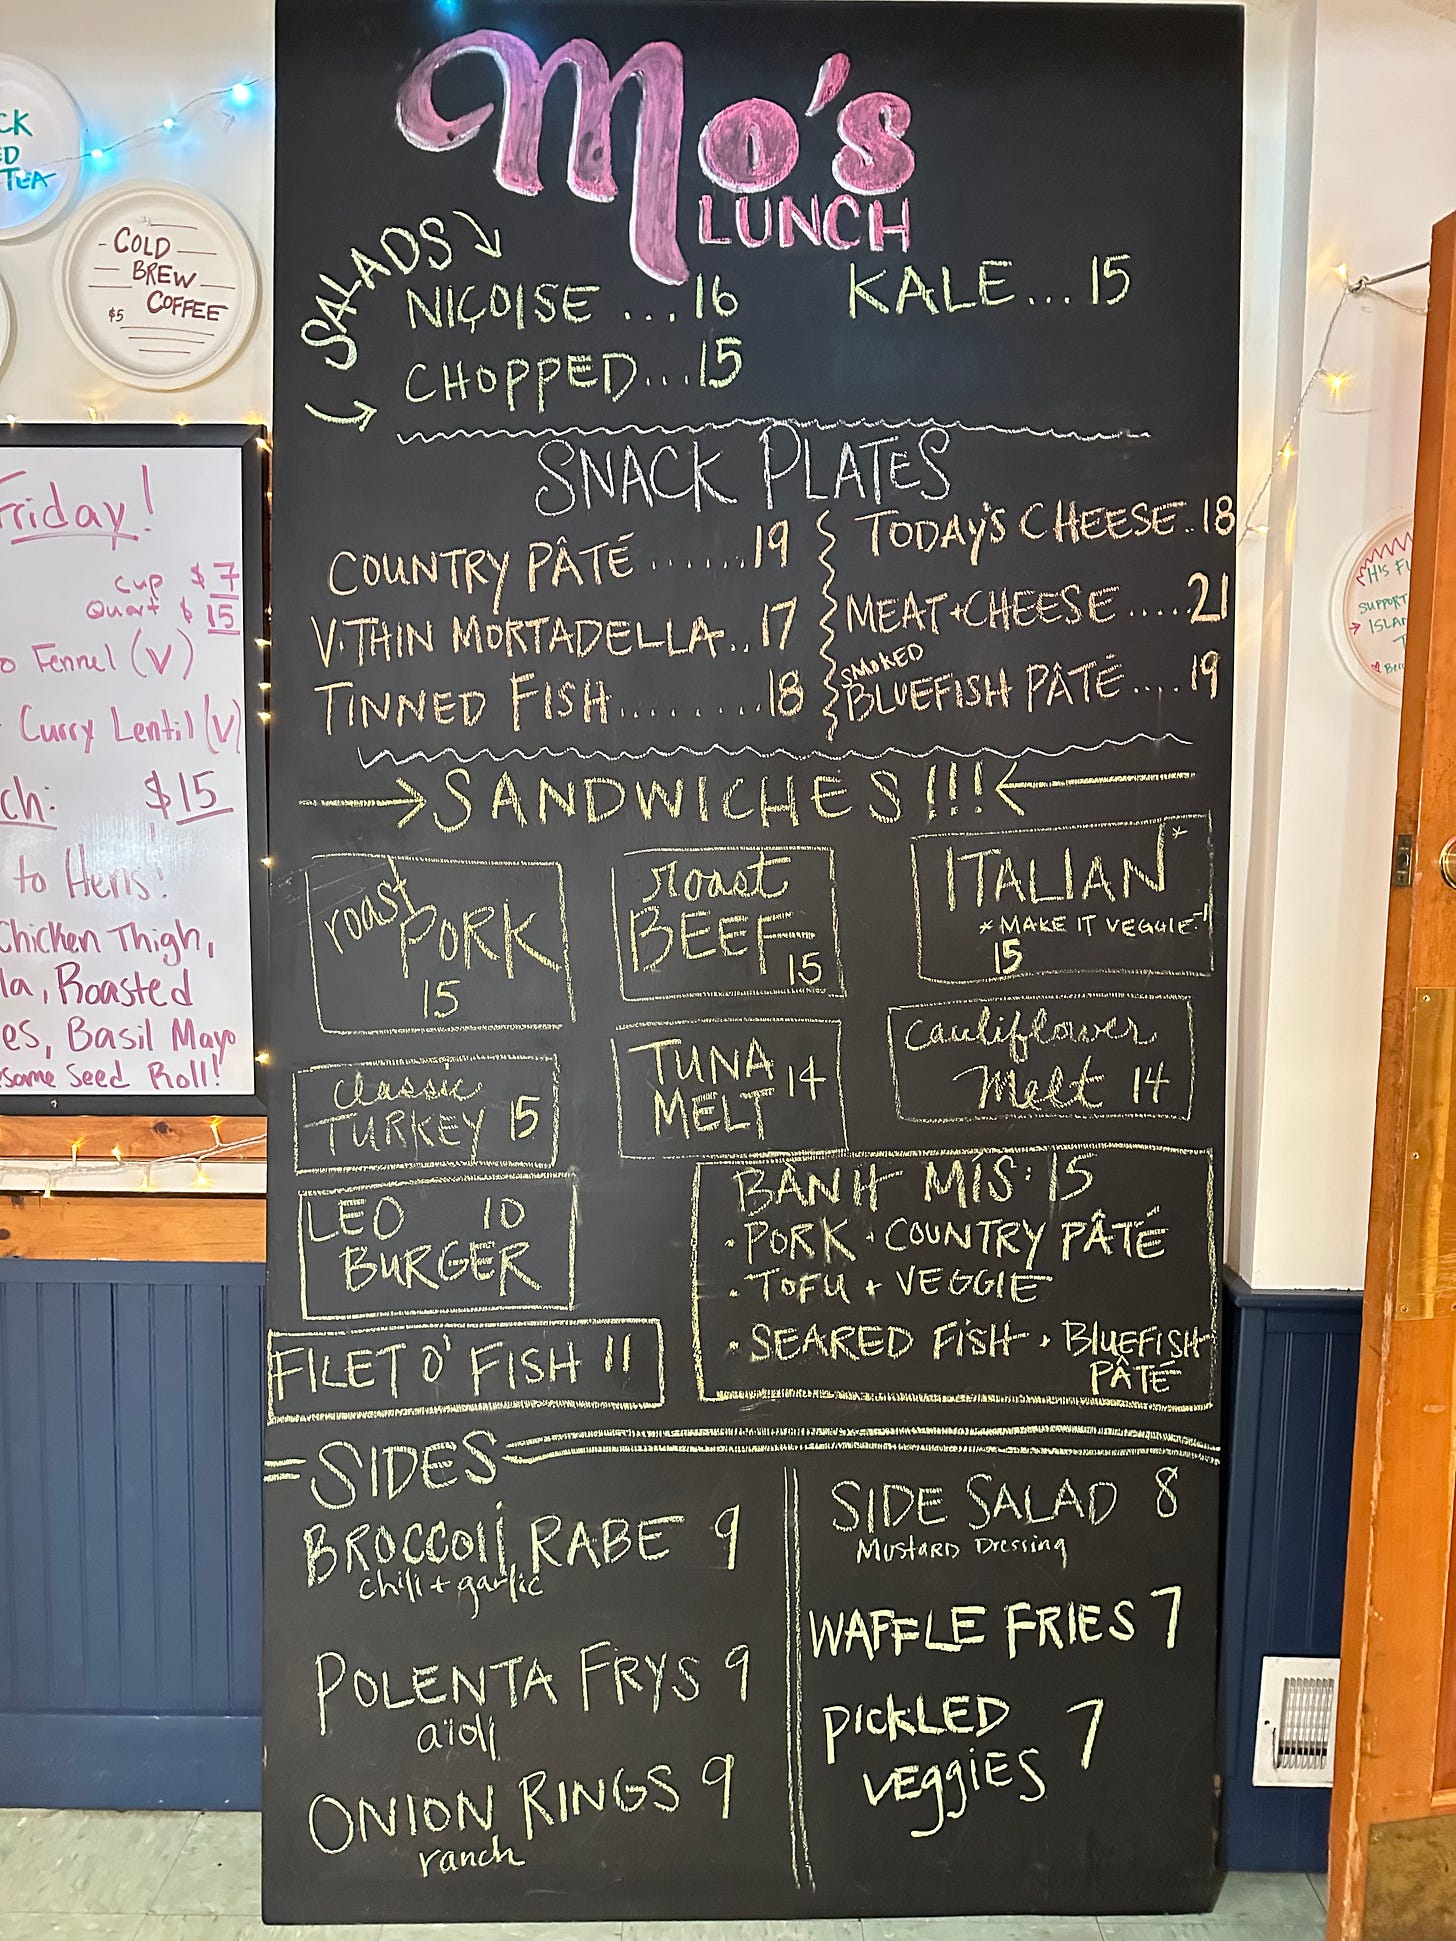 Mo's
LUNCH
SALADS
NIÇOISE ...16
KALE... 15
CHOPPED...15
SNACK PLATES
COUNTRY PÂTÉ ......19
V.THIN MORTADELLA..17
TINNED FISH........18
TODAY'S CHEESE..18
MEAT+CHEESE.....21
SMOKED
BLUEFISH PÂTÉ....19
SANDWICHES!!!
roast PORK
15
roast
BEEF
15
ITALIAN*
* MAKE IT VEGGIE!
15
classic
TURKEY 15
TUNA
MELT 14
cauliflower
Melt 14
LEO 10
BURGER
BÀNH MIS: 15
• PORK + COUNTRY PÂTÉ
• TOFU + VEGGIE
• SEARED FISH + BLUEFISH
PÂTÉ
FILET O' FISH 11
SIDES
BROCCOli RABE 9
chili + garlic
POLENTA FRYS 9
aïoli
ONION RINGS 9
ranch
SIDE SALAD 8
MUSTARD DRESSING
WAFFLE FRIES 7
PICKLED
VEggiES 7
TEA
- COLD
BREW
COFFEE
$5
Friday!
Cup $7
Quart $15
Fennel (V)
Curry Lentil (V)
$15
to Heris!
Chicken Thigh,
Roasted
Basil Mayo
Seed Roll!
SUPPORT